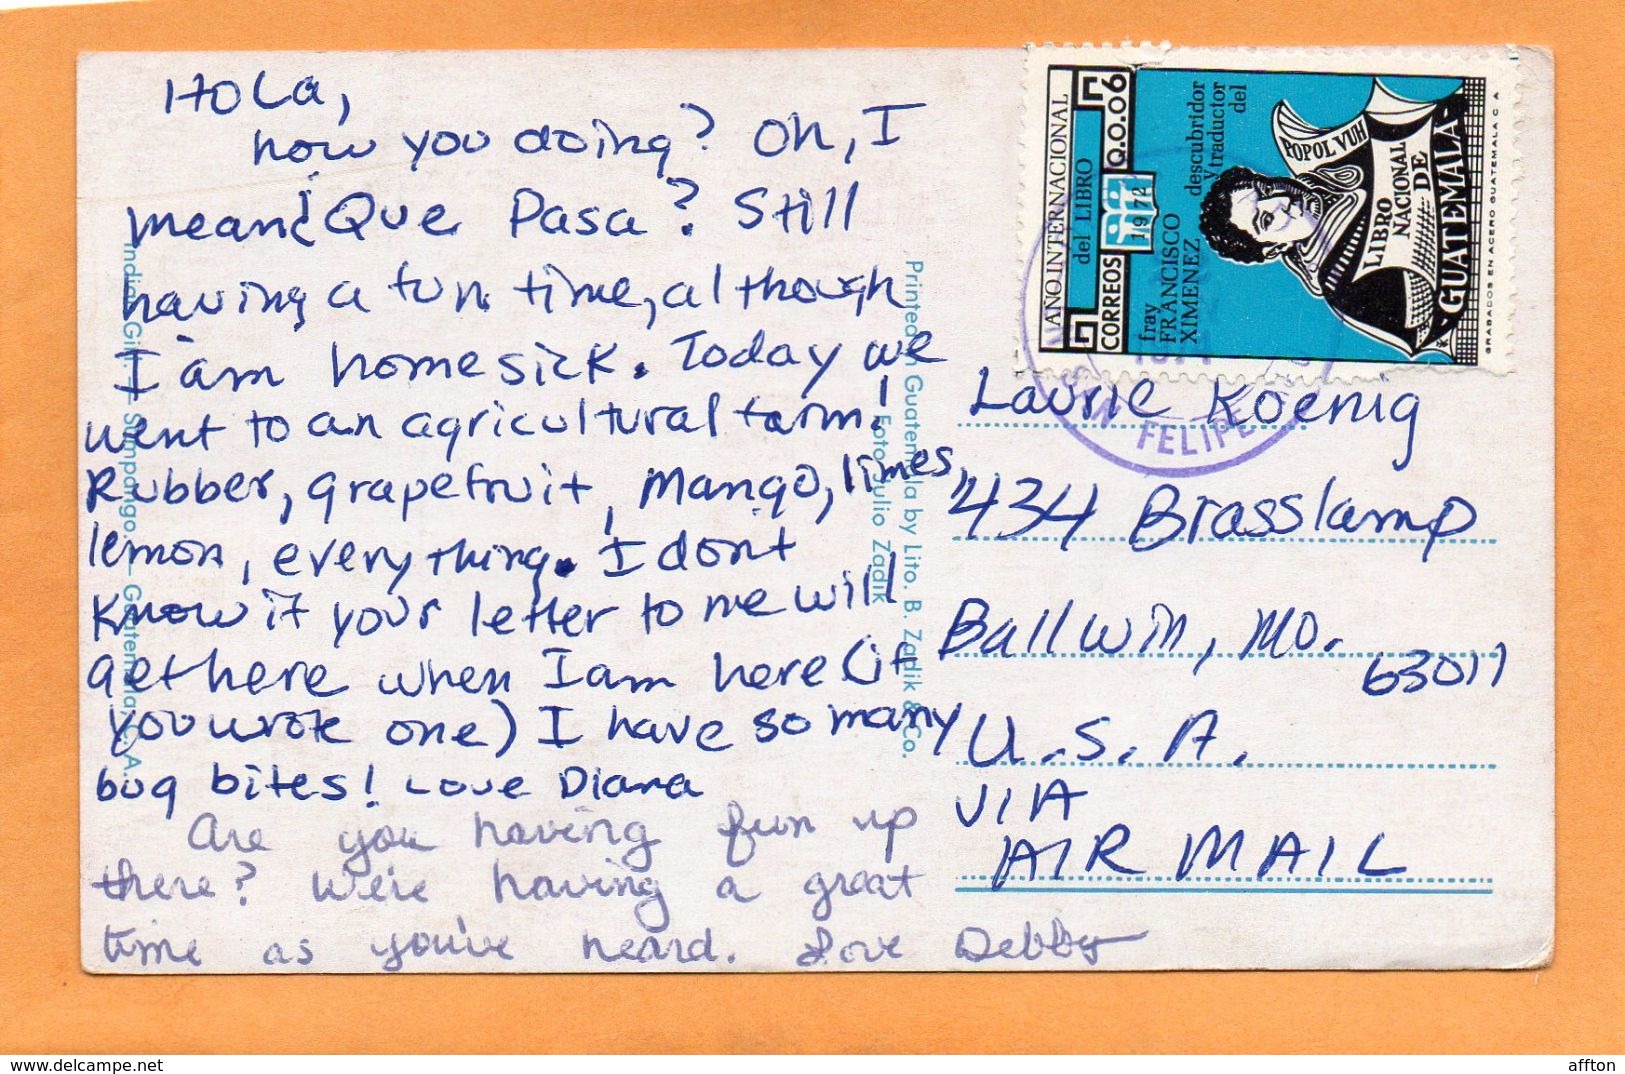 Hola,
how you doing? Oh, I
mean ¿Que Pasa? Still
having a fun time, although
I am homesick. Today we
went to an agricultural farm!
Rubber, grapefruit, mango, limes,
lemon, everything. I dont
know if your letter to me will
get here when I am here (if
you wrote one) I have so many
bug bites! Love Diana
Are you having fun up
there? We're having a great
time as you've heard. Love Debby
Indian Girl - Sumpango - Guatemala, C.A.
Printed in Guatemala by Lito. B. Zadik & Co.
Foto Julio Zadik
AÑO INTERNACIONAL
del LIBRO
CORREOS
1972
Q.0.06
fray
FRANCISCO
XIMENEZ
descubridor
y traductor
del
POPOL VUH
LIBRO
NACIONAL
DE
GUATEMALA
GRABADOS EN ACERO GUATEMALA C A
SAN FELIPE
Laurie Koenig
434 Brasslamp
Ballwin, Mo.
63011
U.S.A.
VIA
AIR MAIL
affton